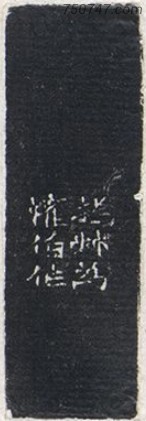 756747.com
撝叔為
伯作